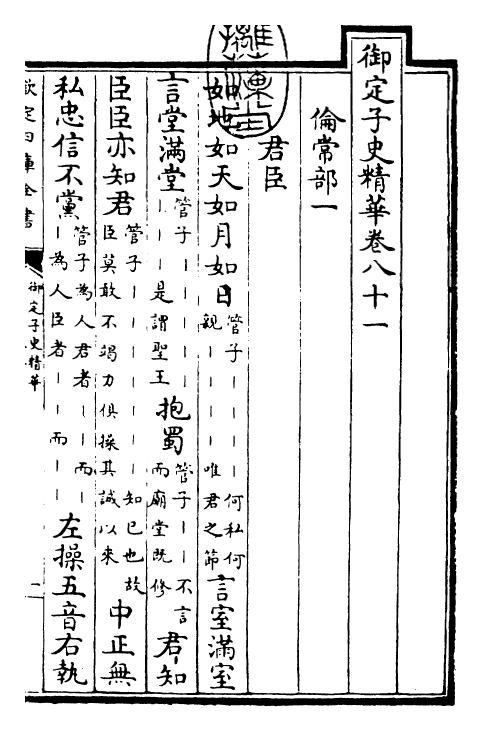 御定子史精華卷八十一
倫常部一
君臣
如地如天如月如日管子｜｜｜｜｜何私何親｜｜｜｜唯君之節言室滿室
言堂滿堂管子｜｜｜｜｜｜｜｜是謂聖王抱蜀管子｜｜不言而廟堂既修君知
臣臣亦知君管子｜｜｜｜｜｜知已也故臣莫敢不竭力俱操其誠以來中正無
私忠信不黨管子為人君者｜｜而｜｜為人臣者｜｜而｜｜左操五音右執
欽定四庫全書
御定子史精華